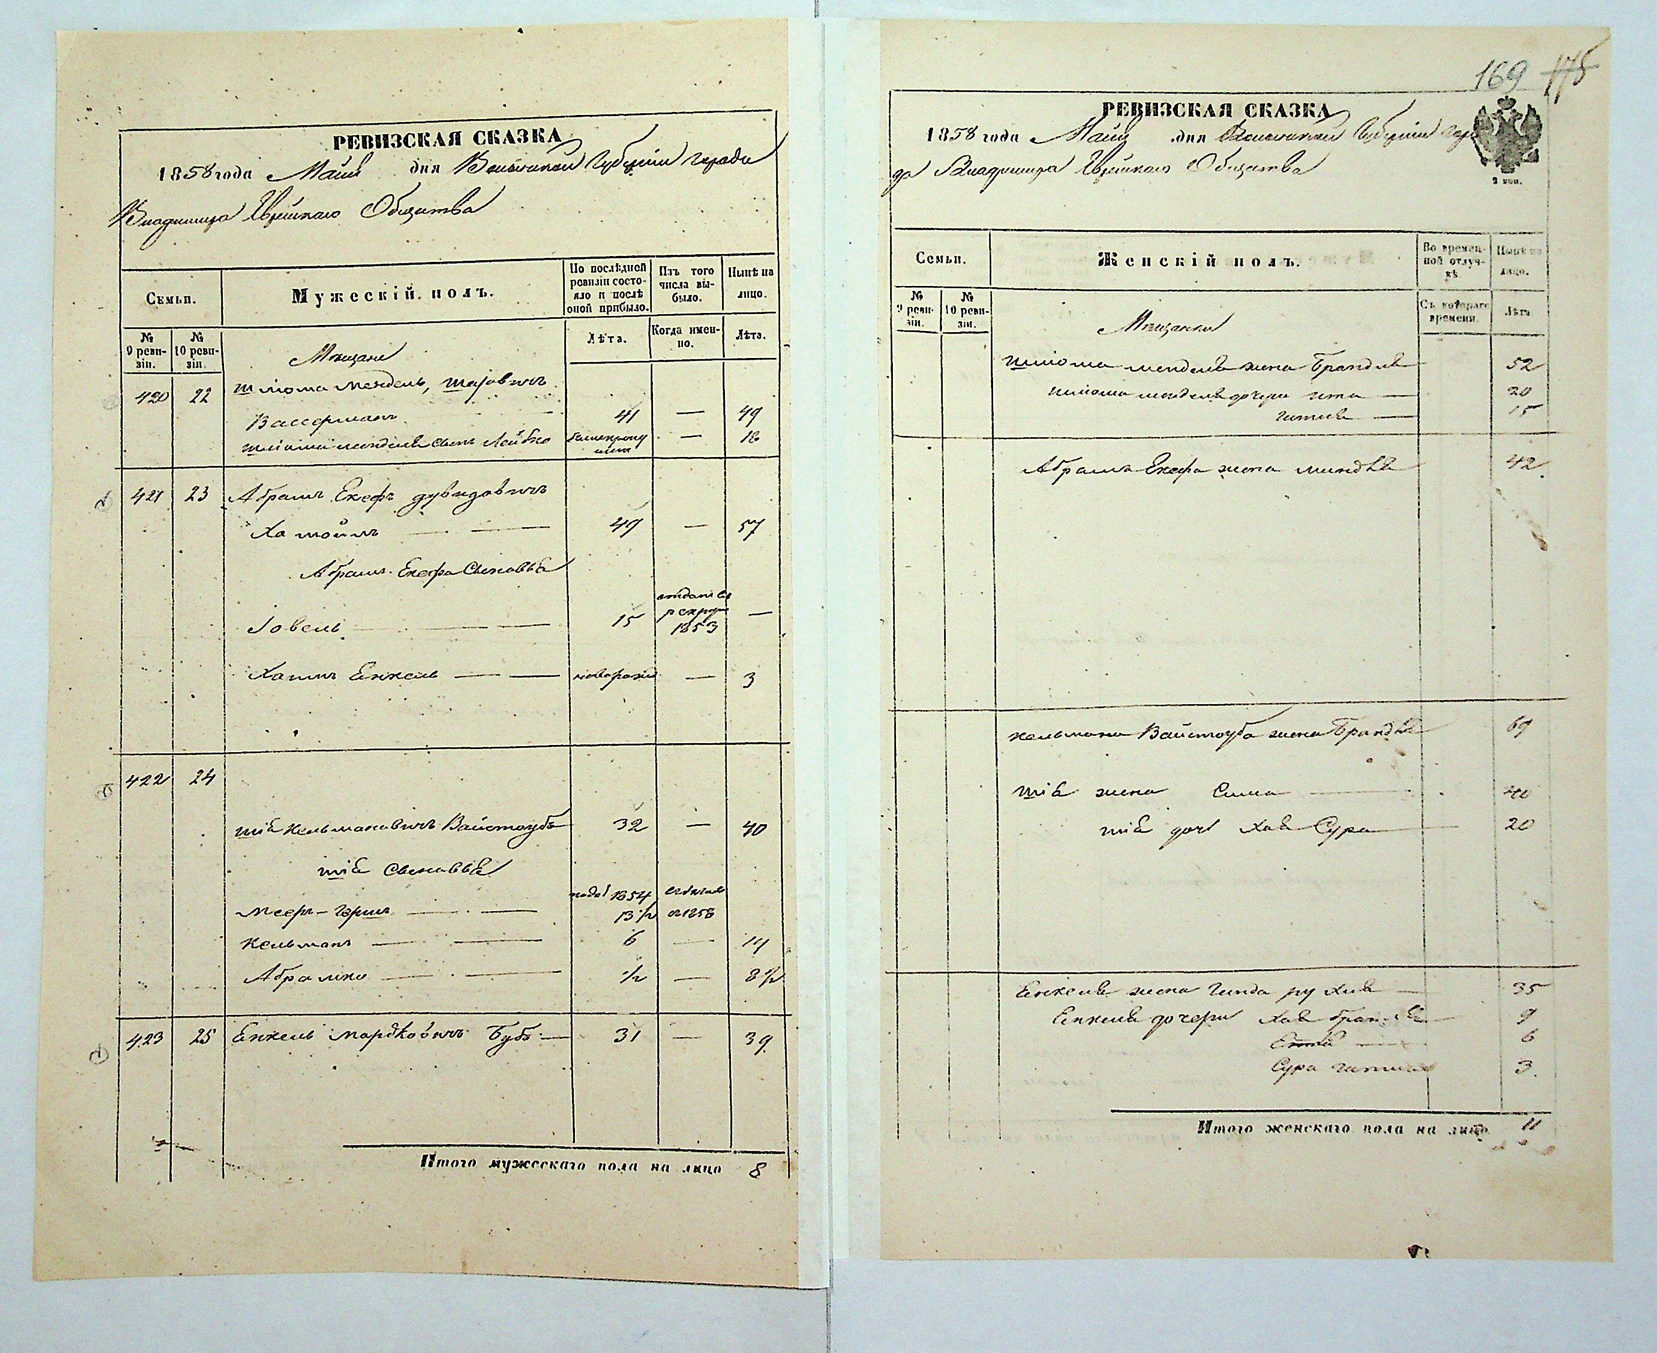 РЕВИЗСКАЯ СКАЗКА
1858 года Майя дня Волынской Губернии города
Владимира Еврейского Общества
Семьи.
Мужескій полъ.
По послѣдней ревизіи состояло и послѣ оной прибыло.
Изъ того числа выбыло.
Нынѣ на лицо.
№ 9 ревизіи.
№ 10 ревизіи.
Лѣта.
Когда именно.
Лѣта.
Мещане
420 22 Шліома Мендель, Шаіовичъ
Вассерманъ 41 — 49
Шліома Менделя сынъ Лейбко — 18
421 23 Абрамъ Екефъ Дувидовичъ
Хатоимъ 49 — 57
Абрамъ Екефа Сыновья
Іовель 15 отданъ въ рекруты 1853 —
Хаимъ Енкель — — новорожд — 3
422 24
Шіе Кельмановичъ Вайстоубъ 32 — 40
Шіе Сыновья
Мееръ-Гершъ 13 1/2
Кельманъ — — 6 — 14
Абрамко — — 1/2 — 8 1/2
423 25 Енкель Мордковичъ Бубъ — 31 — 39
Итого мужескаго пола на лицо 8
169 175
РЕВИЗСКАЯ СКАЗКА
1858 года Майя дня Волынской Губерніи горо
да Владимира Еврейского Общества
2 коп.
Семьи.
Женскій полъ.
Во временной отлучкѣ
Нынѣ на лицо.
№ 9 ревизіи.
№ 10 ревизіи.
Съ котораго времени.
Лѣта.
Мещанки
Шліома Менделя жена Брандля 52
Шліома Менделя дочери Ита — 20
Гитля — 15
Абрамъ Екефа жена Миндля 42
Кельмана Вайстоуба жена Брандля 69
Шіе жена Сима 40
Шіе дочь Хая Сура 20
Енкеля жена Гинда Рухля — 35
Енкеля дочери Хая Брандля 9
6
Сура Гитля 3.
Итого женскаго пола на лицо 11